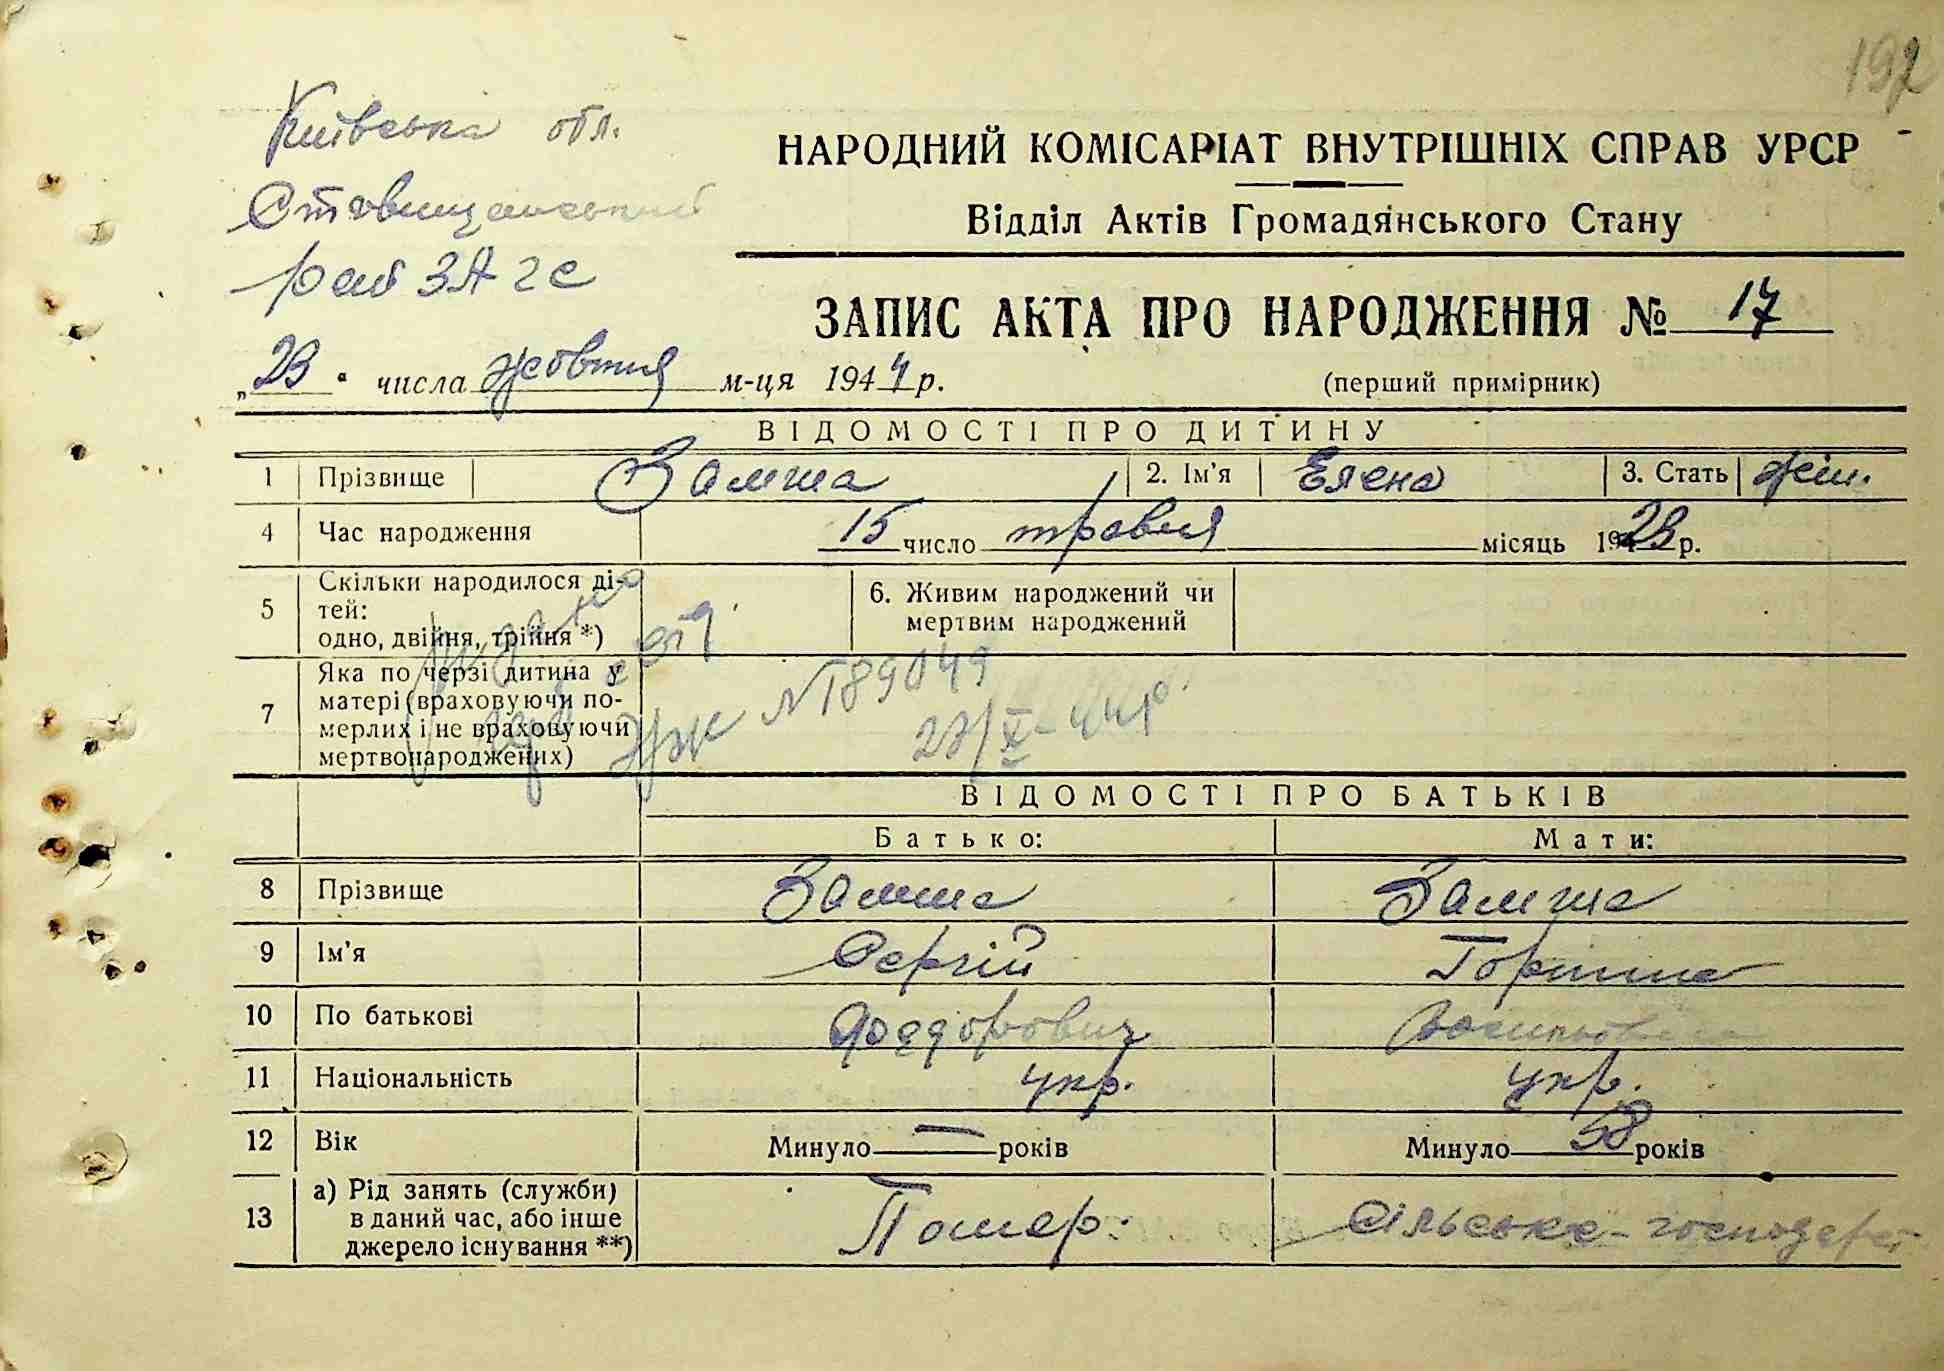 192
Київська обл.
Ставищанський
рай ЗАГС
НАРОДНИЙ КОМІСАРІАТ ВНУТРІШНІХ СПРАВ УРСР
Відділ Актів Громадянського Стану
ЗАПИС АКТА ПРО НАРОДЖЕННЯ № 17
„23" числа жовтня м-ця 1944 р.
(перший примірник)
ВІДОМОСТІ ПРО ДИТИНУ
1 Прізвище Замша 2. Ім'я Елена 3. Стать жін.
4 Час народження 15 число травня місяць 1923 р.
5 Скільки народилося ді-
тей:
одно, двійня, трійня *)
6. Живим народжений чи
мертвим народжений
7 Яка по черзі дитина у
матері (враховуючи по-
мерлих і не враховуючи
мертвонароджених)
ЖК №189049
27/X-44р.
ВІДОМОСТІ ПРО БАТЬКІВ
Батько: Мати:
8 Прізвище Замша Замша
9 Ім'я Сергій Горпина
10 По батькові Федорович Васильовна
11 Національність укр. укр.
12 Вік Минуло — років Минуло 58 років
13 а) Рід занять (служби)
в даний час, або інше
джерело існування **)
Помер. сільське-господарст